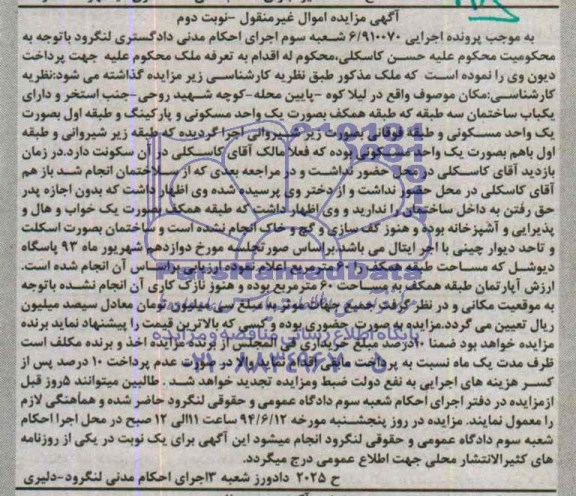 آگهی مزایده اموال غیرمنقول -نوبت دوم
به موجب پرونده اجرایی ۶/۹۱۰۰۷۰ شعبه سوم اجرای احکام مدنی دادگستری لنگرود باتوجه به
محکومیت محکوم علیه حسن کاسکلی،محکوم له اقدام به تعرفه ملک محکوم علیه جهت پرداخت
دیون وی را نموده است که ملک مذکور طبق نظریه کارشناسی زیر مزایده گذاشته می شود:نظریه
کارشناسی:مکان موصوف واقع در لیلا کوه -پایین محله-کوچه شهید روحی-جنب استخر و دارای
یکباب ساختمان سه طبقه که طبقه همکف بصورت یک واحد مسکونی و پارکینگ و طبقه اول بصورت
یک واحد مسکونی و طبقه فوقانی بصورت زیر شیروانی اجرا گردیده که طبقه زیر شیروانی و طبقه
اول باهم بصورت یک واحد مسکونی بوده که فعلا مالک آقای کاسکلی در آن سکونت دارد.در زمان
بازدید آقای کاسکلی در محل حضور نداشت و در مراجعه بعدی که از ساختمان انجام شد باز هم
آقای کاسکلی در محل حضور نداشت و از دختر وی پرسیده شده وی اظهار داشت که بدون اجازه پدر
حق رفتن به داخل ساختمان را ندارید و وی اظهار داشت که طبقه همکف بصورت یک خواب و هال و
پذیرایی و آشپزخانه بوده و هنوز کف سازی و گچ و خاک انجام نشده است و ساختمان بصورت اسکلت
و تاحد دیوار چینی با آجر ایتال می باشد.براساس صورتجلسه مورخ دوازدهم شهریور ماه ۹۳ پاسگاه
دیوشل که مساحت طبقه همکف مترمربع اعلام نموده ارزیابی براساس آن انجام شده است.
ارزش آپارتمان طبقه همکف به مساحت ۶۰ مترمربع بوده و هنوز نازک کاری آن انجام نشده باتوجه
به موقعیت مکانی و در نظر گرفتن جمیع جهات موثر به مبلغ سی میلیون تومان معادل سیصد میلیون
ریال تعیین می گردد.مزایده به صورت حضوری بوده و کسی که بالاترین قیمت را پیشنهاد نماید برنده
مزایده خواهد بود ضمنا ۱۰درصد مبلغ خریداری فی المجلس از برنده مزایده اخذ و برنده مکلف است
ظرف مدت یک ماه نسبت به پرداخت مابقی اقدام نماید والا در صورت عدم پرداخت ۱۰ درصد پس از
کسر هزینه های اجرایی به نفع دولت ضبط ومزایده تجدید خواهد شد . طالبین میتوانند ۵روز قبل
ازمزایده در دفتر اجرای احکام شعبه سوم دادگاه عمومی و حقوقی لنگرود حاضر شده و هماهنگی لازم
را معمول نمایند. مزایده در روز پنجشنبه مورخه ۹۴/۶/۱۲ ساعت ۱۱الی ۱۲ صبح در محل اجرا احکام
شعبه سوم دادگاه عمومی و حقوقی لنگرود انجام میشود این آگهی برای یک نوبت در یکی از روزنامه
های کثیرالانتشار محلی جهت اطلاع عمومی درج میگردد.
ح ۲۰۲۵ دادورز شعبه ۳اجرای احکام مدنی لنگرود-دلیری